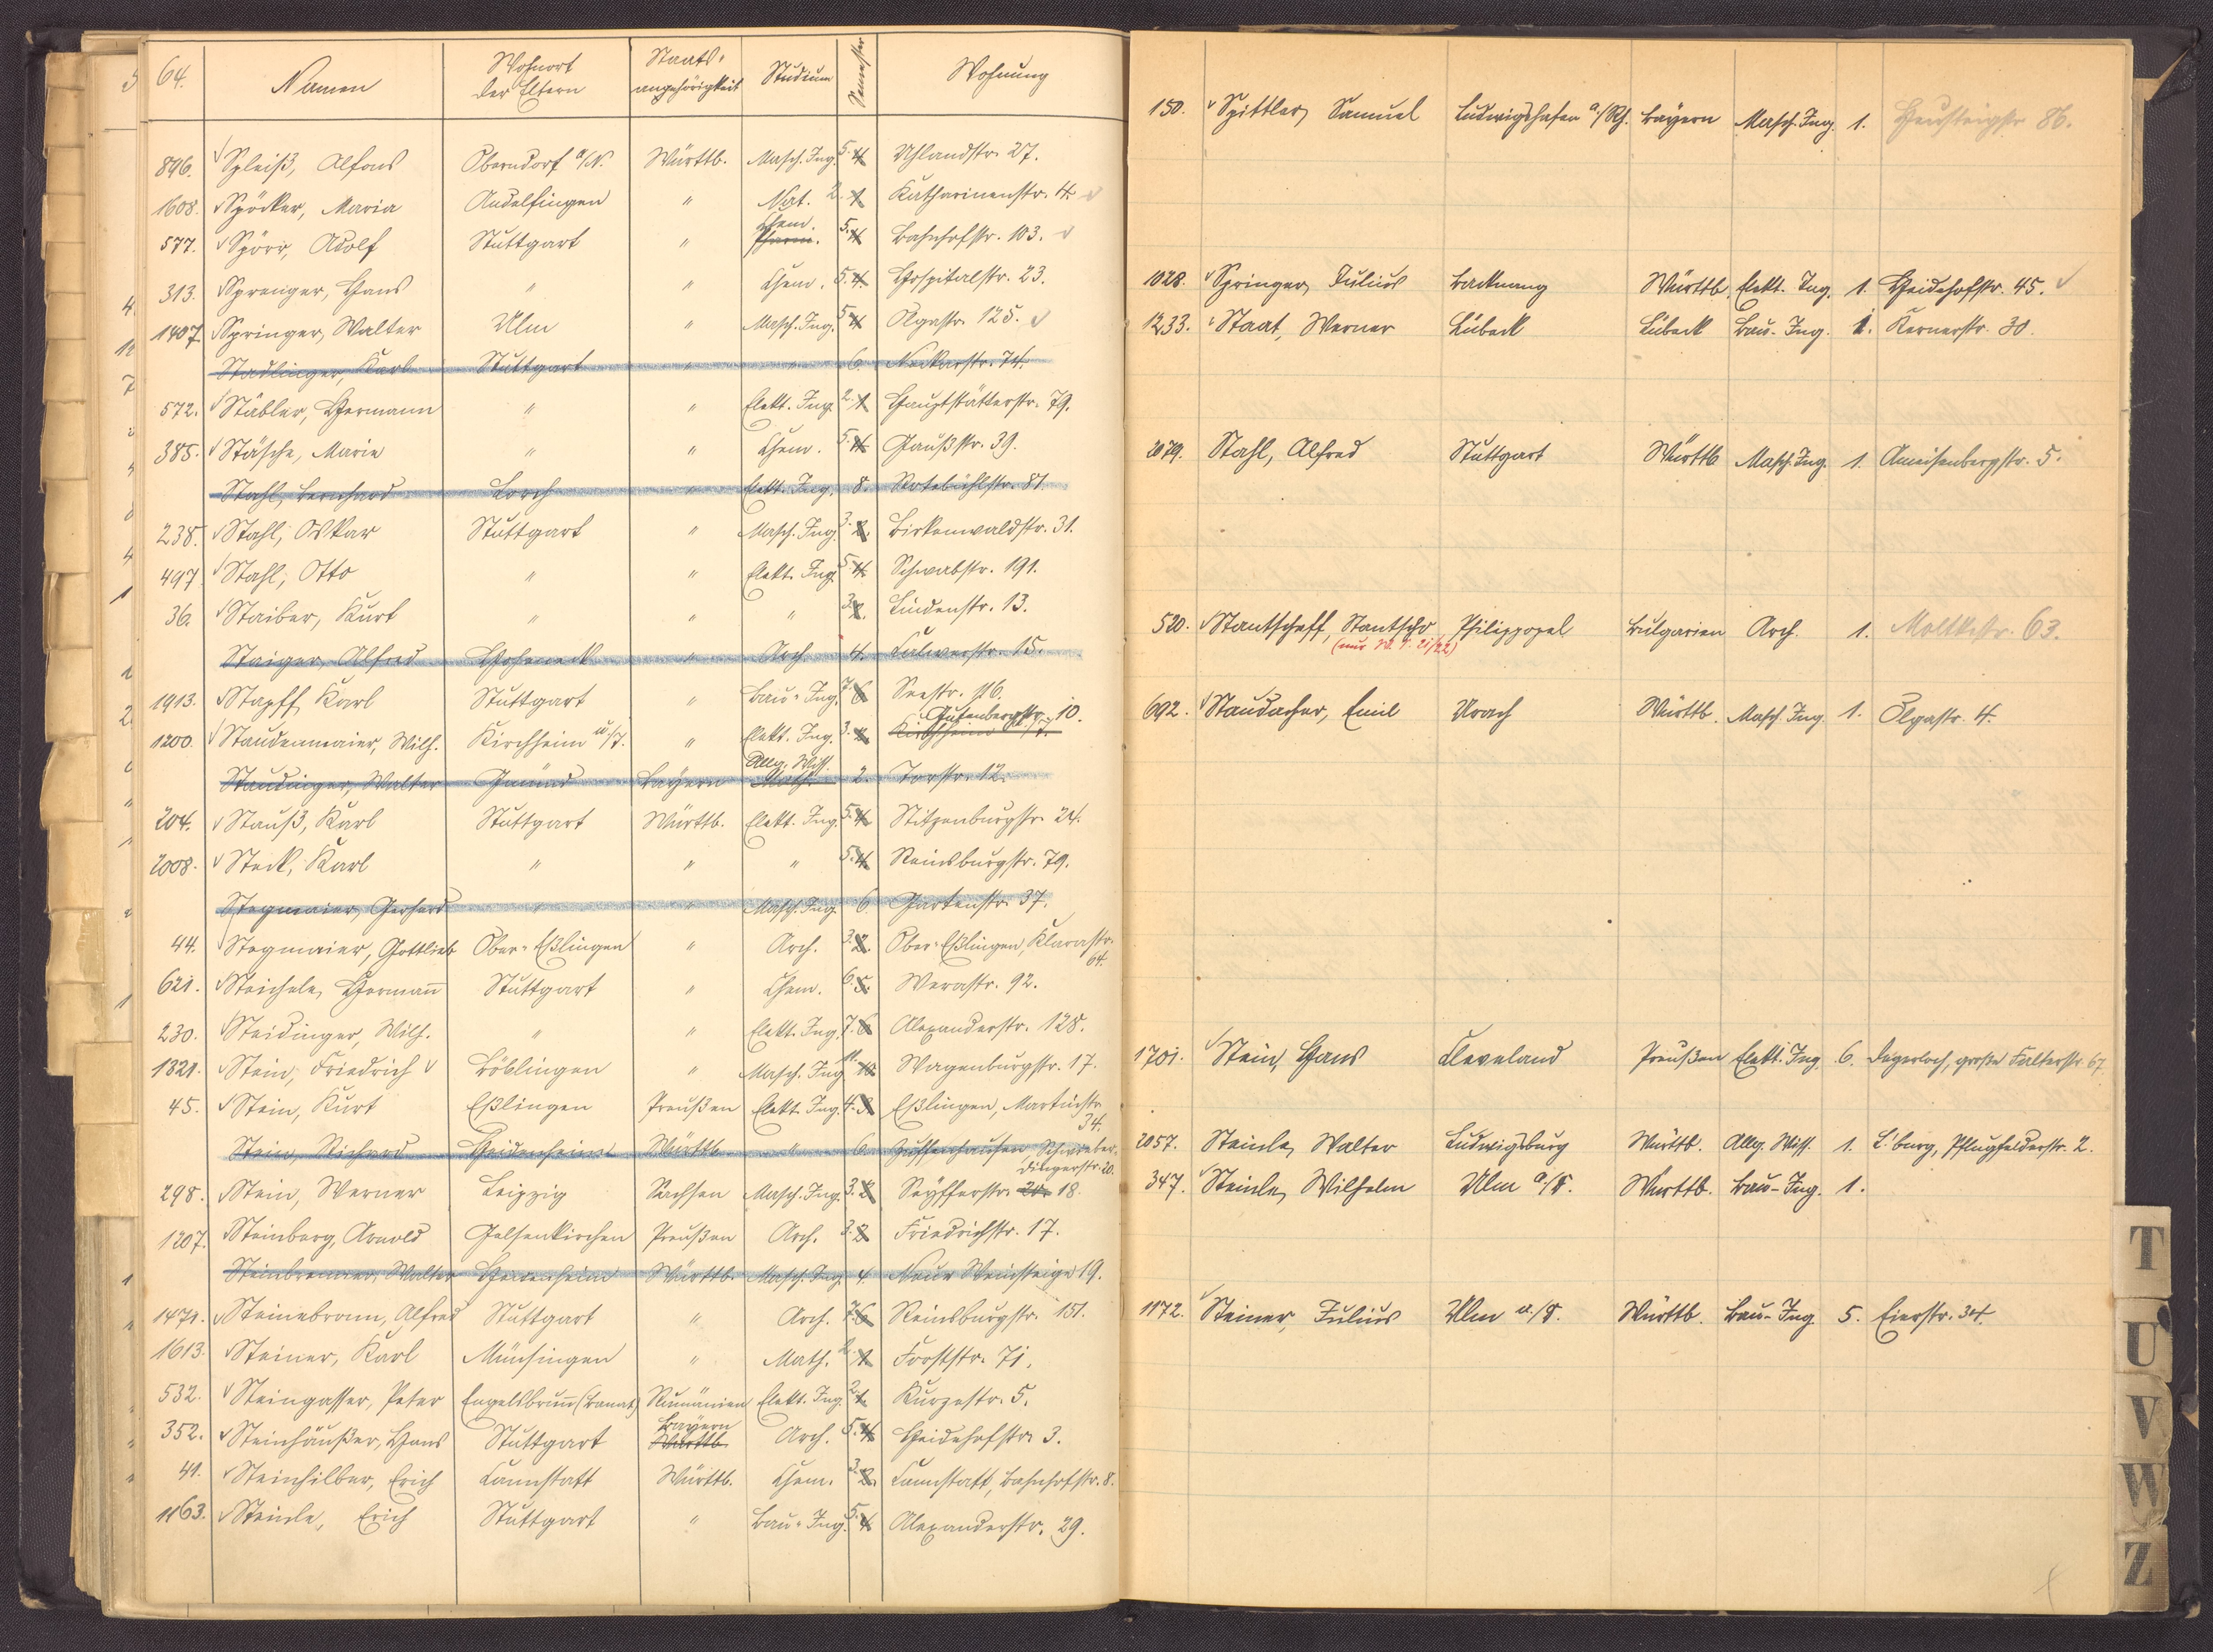 64.
Namen
Wohnort der Eltern
Staats-angehörigkeit
Studium
Semester
Wohnung
896. Spleiß, Alfons Oberndorf a/N. Württb. Masch. Ing. 5. 4. Uhlandstr. 27.
1608. Spöcker, Maria Andelfingen " Nat. 2. 1. Katharinenstr. 4.
577. Spörr, Adolf Stuttgart " Chem. Pharm. 5. 4. Bahnhofstr. 103.
313. Sprenger, Hans " " Chem. 5. 4. Hospitalstr. 23.
1407. Springer, Walter Ulm " Masch. Ing. 5. 4. Olgastr. 125.
Stadlinger, Karl Stuttgart " " 6. Neckarstr. 74.
572. Stäbler, Hermann " " Elekt. Ing. 2. 1. Hauptstätterstr. 79.
385. Stäsche, Marie " " Chem. 5. 4. Gaußstr. 39.
Stahl, Bernhard Lorch " Elekt. Ing. 8. Rotebühlstr. 81.
238. Stahl, Oskar Stuttgart " Masch. Ing. 3. 2. Birkenwaldstr. 31.
497. Stahl, Otto " " Elekt. Ing. 5. 4. Schwabstr. 191.
36. Staiber, Kurt " " " 3. 2. Lindenstr. 13.
Staiger, Alfred Hoheneck " Arch. 4. Calwerstr. 15.
1913. Stapff, Karl Stuttgart " Bau-Ing. 7. 6. Seestr. 116.
1200. Staudenmaier, Wilh. Kirchheim u/T. " Elekt. Ing. 3. 2. Kirchheim u/T. Gutenbergstr. 10.
Staudinger, Walter Gmünd Bayern Allg. Wiss. Math. 2. Torstr. 12.
204. Stauß, Karl Stuttgart Württb. Elekt. Ing. 5. 4. Stitzenburgstr. 24.
2008. Steck, Karl " " " 5. 4. Reinsburgstr. 79.
Stegmaier, Gerhard " " Masch. Ing. 6. Gartenstr. 37.
44. Stegmaier, Gottlieb Ober-Eßlingen " Arch. 3. 2. Ober-Eßlingen, Klarastr. 64.
621. Steichele, Hermann̄ Stuttgart " Chem. 6. 5. Werastr. 92.
230. Steidinger, Wilh. " " Elekt. Ing. 7. 6. Alexanderstr. 128.
1321. Stein, Friedrich Böblingen " Masch. Ing. 11. 10. Wagenburgstr. 17.
45. Stein, Kurt Eßlingen Preußen Elekt. Ing. 4. 3. Eßlingen, Martinstr. 34.
Stein, Richard Heidenheim Württb. " 6. Zuffenhausen, Schwieberdingerstr. 20.
298. Stein, Werner Leipzig Sachsen Masch. Ing. 3. 2. Seyfferstr. 20. 18.
1207. Steinberg, Arnold Gelsenkirchen Preußen Arch. 3. 2. Friedrichstr. 17.
Steinbrenner, Walter Heidenheim Württb. Masch. Ing. 4. Neue Weinsteige 19.
1471. Steinebronn, Alfred Stuttgart " Arch. 7. 6. Reinsburgstr. 151.
1613. Steiner, Karl Münsingen " Math. 2. 1. Forststr. 71.
532. Steingasser, Peter Engelsbrunn̄ (Banat) Rumänien Elekt. Ing. 2. 1. Kurzestr. 5.
352. Steinhäußer, Hans Stuttgart Bayern Württb. Arch. 5. 4. Heidehofstr. 3.
41. Steinhilber, Erich Cannstatt Württb. Chem. 3. 2. Cannstatt, Bahnhofstr. 8.
1163. Steinle, Erich Stuttgart " Bau-Ing. 5. 4. Alexanderstr. 29.
150. Spittler, Samuel Ludwigshafen a/Rh. Bayern Masch. Ing. 1. Heusteigstr. 86.
1028. Springer, Julius Backnang Württb. Elekt. Ing. 1. Heidehofstr. 45.
1233. Staat, Werner Lübeck Lübeck Bau-Ing. 1. Kernerstr. 30.
2079. Stahl, Alfred Stuttgart Württb. Masch. Ing. 1. Ameisenbergstr. 5.
520. Stantscheff, Stantscho Philippopel Bulgarien Arch. 1. Moltkestr. 63.
(nur W. S. 21/22)
692. Staudacher, Emil Urach Württb. Masch. Ing. 1. Olgastr. 4.
1701. Stein, Hans Cleveland Preußen Elekt. Ing. 6. Degerloch, große Falterstr. 67
2057. Steinle, Walter Ludwigsburg Württb. Allg. Wiss. 1. L'burg, Pflugfelderstr. 2.
347. Steinle, Wilhelm Ulm a/D. Württb. Bau-Ing. 1.
1172. Steiner, Julius Ulm a./D. Württb. Bau-Ing. 5. Eierstr. 34.
T
U
V
W
Z